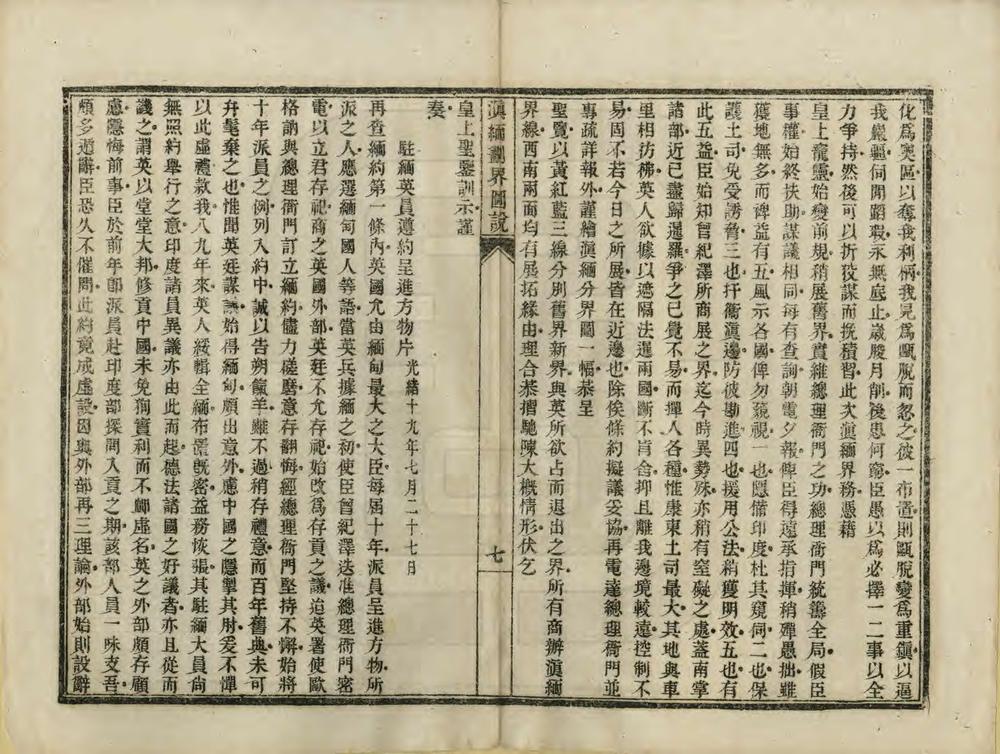 化爲奧區以奪我利柄我見爲甌脫而忽之彼一布置則甌脫變爲重鎭以逼
我巖疆伺閒蹈瑕永無底止歲朘月削後患何窮臣愚以爲必擇一二事以全
力爭持然後可以折狡謀而挽積習此次滇緬界務憑藉
皇上龍靈始變前規稍展舊界實維總理衙門之功總理衙門統籌全局假臣
事權始終扶助謀議相同每有查詢朝電夕報俾臣得遠承指揮稍殫愚拙雖
獲地無多而裨益有五風示各國俾勿藐視一也隱備印度杜其窺伺二也保
護土司免受誘脅三也扞衞滇邊防彼勘進四也援用公法稍獲明效五也有
此五益臣始知曾紀澤所商展之界迄今時異勢殊亦稍有窒礙之處蓋南掌
諸部近已盡歸暹羅爭之已覺不易而撣人各種惟康東土司最大其地與車
里相彷彿英人欲據以遮隔法暹兩國斷不肯舍抑且離我邊境較遠控制不
易固不若今日之所展皆在近邊也除俟條約擬議妥協再電達總理衙門並
專疏詳報外謹繪滇緬分界圖一幅恭呈
聖覽以黃紅藍三線分別舊界新界與英所欲占而退出之界所有商辦滇緬
界線西南兩面均有展拓緣由理合恭摺馳陳大概情形伏乞
滇緬劃界圖說
七
皇上聖鑒訓示謹
奏
駐緬英員遵約呈進方物片 光緖十九年七月二十七日
再查緬約第一條內英國允由緬甸最大之大臣每屆十年派員呈進方物所
派之人應選緬甸國人等語當英兵據緬之初使臣曾紀澤迭准總理衙門密
電以立君存祀商之英國外部英廷不允存祀始改爲存貢之議迨英署使歐
格訥與總理衙門訂立緬約儘力磋磨意存翻悔經總理衙門堅持不懈始將
十年派員之例列入約中誠以告朔餼羊雖不過稍存禮意而百年舊典未可
弁髦棄之也惟聞英廷謀議始得緬甸頗出意外慮中國之隱掣其肘爰不憚
以此虛禮款我八九年來英人綏輯全緬布置旣密益務恢張其駐緬大員尙
無照約舉行之意印度諸員異議亦由此而起德法諸國之好議者亦且從而
譏之謂英以堂堂大邦修貢中國未免徇實利而不顧虛名英之外部頗存顧
慮隱悔前事臣於前年卽派員赴印度部探問入貢之期該部人員一味支吾
頗多遁辭臣恐久不催問此約竟成虛設因與外部再三理論外部始則設辭